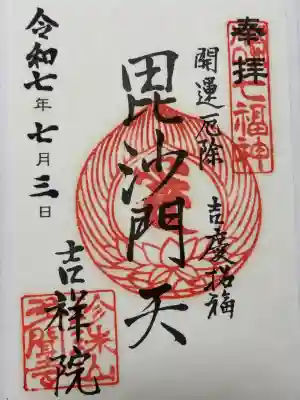 奉拝
開運厄除
吉慶招福
毘沙門天
令和七年七月三日
吉祥院
七福神